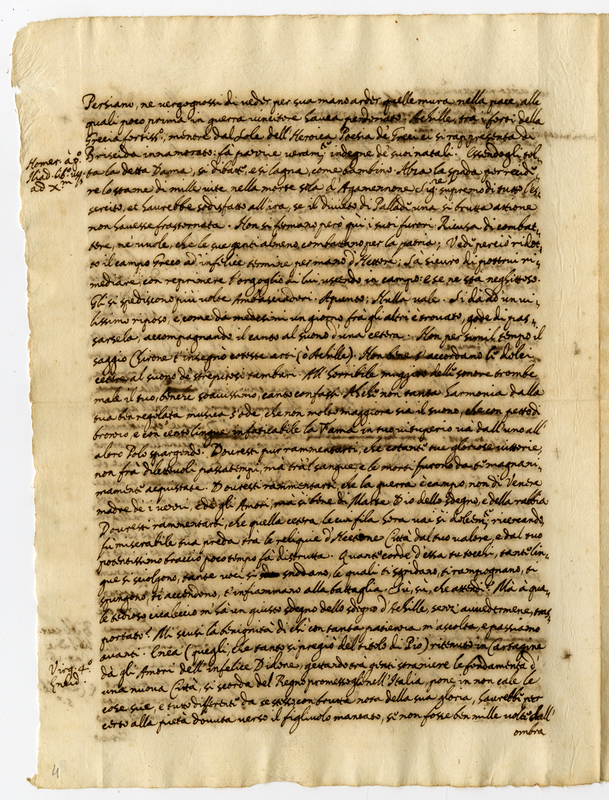 Persiano, ne vergognossi di veder per sua mano arder quelle mura nella pace, alle
quali poco prima in guerra vincitore havea perdonato. Achille, trà i forti della
Grecia fortiss.º, mentre dal sole dell'Heroica Poesia de Greci ci si rappresenta di
Briseida innamorato: fa pazzie veram.te indegne de suoi natali. Essendogli tol,
Homer. à pº
Iliad. libº usq;
ad Xm
ta la detta Dama, si dibatte, e si lagna, come bambino. Alza la spada per recide
re lo stame di mille vite nella morte sola di Agamennone Sig.re supremo di tutto l'es
sercito, et haurebbe sodisfatto all'ira, se il divieto di Pallade una sì brutta attione
non havesse frastornata. Non si fermano però qui i suoi furori. Ricusa di combat,
tere, ne vuole, che le sue genti almeno combattano per la patria; Vede perciò ridot,
to il campo Greco ad infelice termine per mano d'Hettore; Sà sicuro di potervi ri,
mediare con reprimere l'orgoglio di lui uscendo in campo: e se ne stà neghittoso.
Gli si spediscono più volte Ambasciadori. Apunto: Nulla vale. Si dà ad un vi,
lissimo riposo, e come da medesimi un giorno frà gli altri è trovato, gode di pas,
sarsela, accompagnando il canto al suono d'una cetera. Non per simil tempo il
saggio Chirone t'insegnò cotesse arti (ò Achille). Non bene s'accordano le dolci
cetere al suono de strepitosi tamburi. All'horribile muggito delle sonore trombe
male il tuo, benche soavissimo, canto confassi. Ahi che non tanta harmonia dalla
tua ben regolata musica s'ode che non molto maggiore sia il suono, che con petto di
bronzo, e con cento lingue infaticabile la Fama in tuo vituperio và dall'uno all'
altro Polo spargendo. Dovresti pur rammentarti, che cotante tue gloriose vittorie,
non frà dilettevoli passatempi, ma trà'l sangue, e le morti furono da te magnani,
mamente acquistate. Dovresti rammentarti, che la guerra è campo, non di Venere
madre de i vezzi, e de gli Amori, ma sì bene di Marte Dio dello sdegno, e della rabbia
Dovresti rammentarti, che quella cetera, le cui fila hora vai sì dolcem.te ricercando,
fù miserabile tua preda tra le reliquie d' Città dal tuo valore, e dal tuo
potentissimo braccio poco tempo fà distrutta. Quante corde d'essa tu tocchi, tante lin,
gue si sciolgono, tante voci si snodano, le quali ti sgridano, ti rampognano, ti
spingono, ti accendono, t'infiammano alla battaglia. Sù, sù, che attendi? Mà à qua,
le tedioso cicaleccio m'hà un giusto sdegno dello sdegno d'Achille, senz'avvedermene, tras,
portato? Mi scusi la benignità di chi con tanta patienza m'ascolta, e passiamo
avanti. Enea (quegli, che tanto si pregiò del titolo di Pio) ritenuto in Cartagine
Virg: 4º
Eneid.
dà gli Amori dell'Infelice Didone, gettando trà genti straniere le fondamenta d'
una nuova Città, si scorda del Regno promessogli nell'Italia, pone in non cale le
cose sue, e tutto differente da se stesso con brutta nota della sua gloria, haurebbe per
certo alla pietà dovuta verso il figliuolo mancato, se non fosse ben mille volte dall'
ombra
4